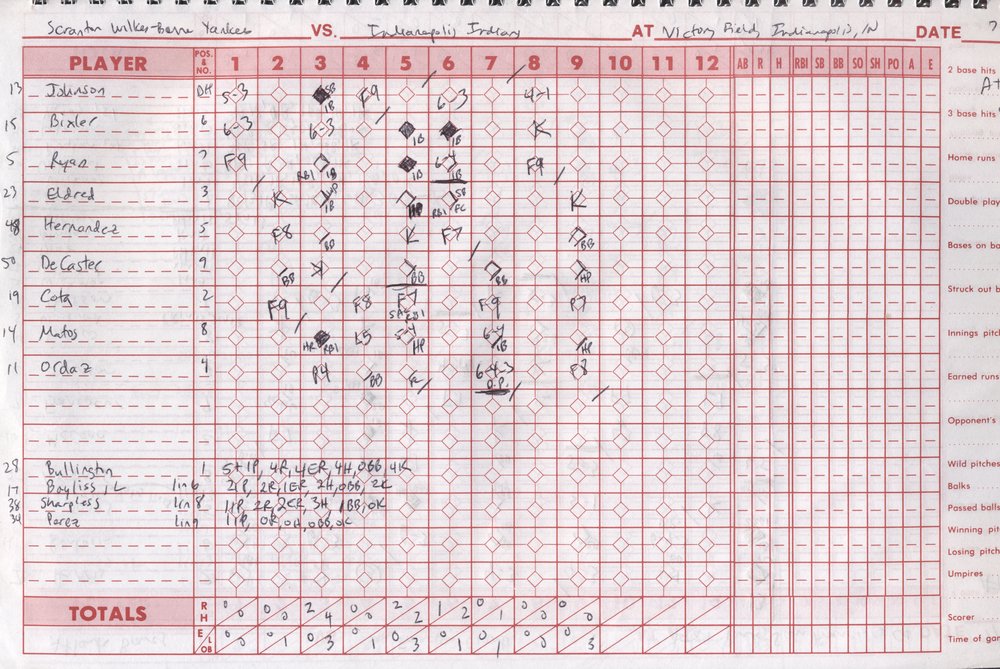 Scranton Wilkes-Barre Yankees VS. Indianapolis Indians AT Victory Field, Indianapolis, IN DATE 7
PLAYER POS. & NO. 1 2 3 4 5 6 7 8 9 10 11 12 AB R H RBI SB BB SO SH PO A E
2 base hits
13 Johnson DH 5-3 SB 1B F9 6-3 4-1
3 base hits
15 Bixler 6 6-3 6-3 1B 1B K
5 Ryan 7 F9 RBI 1B 1B 6-4 1B F9
Home runs
23 Eldred 3 K WP 1B HP SB RBI FC K
Double play
48 Hernandez 5 F8 BB K F7 BB
Bases on ba
50 DeCaster 9 BB K BB BB HP
19 Cota 2 F9 F8 F7 SAC RBI F9 P7
Struck out b
14 Matos 8 HR RBI L5 5-4 HP 6-4 1B HP
Innings pitc
11 Ordaz 4 P4 BB K 6-4-3 D.P. F8
Earned runs
Opponent's
28 Bullington 1 5+ IP, 4R, 4ER, 4H, 0BB 4K
Wild pitches
17 Bayliss, L in 6 2IP, 2R, 1ER, 2H, 0BB, 2K
Balks
38 Sharpless in 8 1IP, 2R, 2ER, 3H, 1BB, 0K
Passed balls
34 Perez in 9 1IP, 0R, 0H, 0BB, 0K
Winning pit
Losing pitch
Umpires
TOTALS R H 0 0 0 0 2 4 0 0 2 2 1 2 0 1 0 0 0 0
Scorer
E LOB 0 0 0 1 0 3 0 1 0 3 0 1 0 1 0 0 0 3
Time of gam